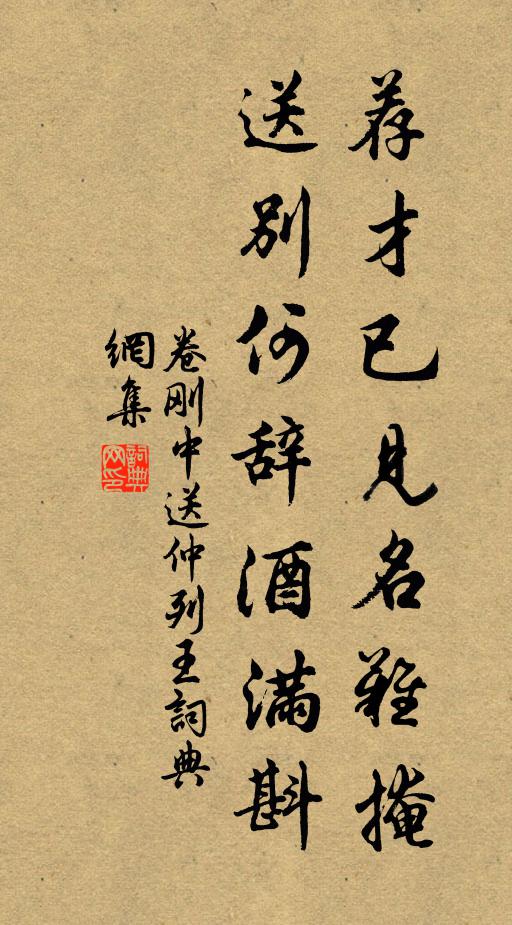 荐才已见名难掩
送别何辞酒满斟
卷刚中送仲列王詞典
網集
詞典网印